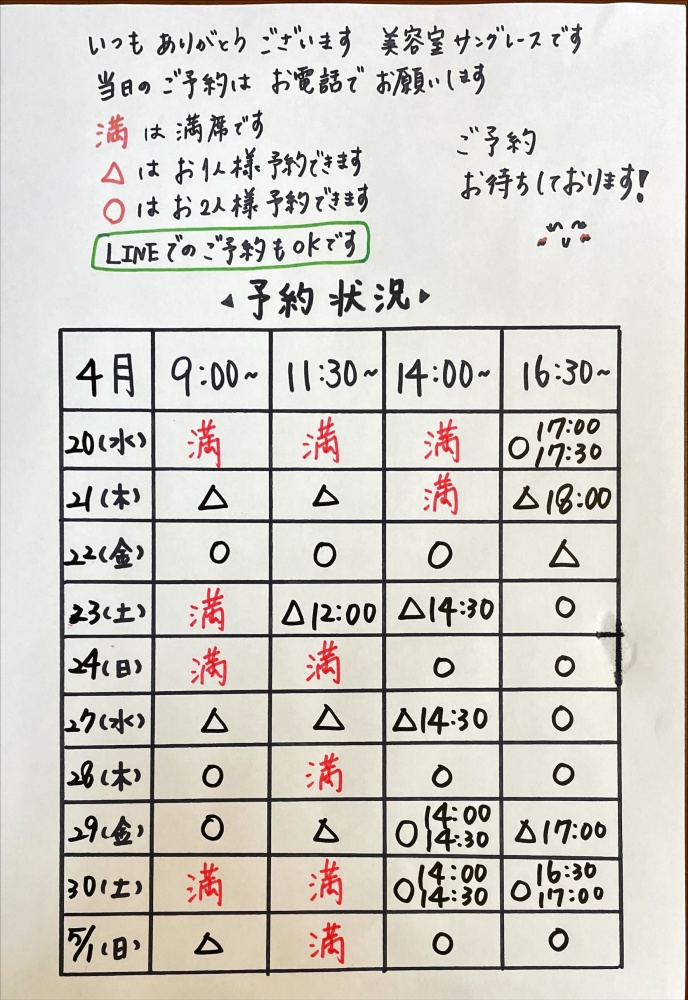 いつも ありがとう ございます 美容室 サングレースです
当日の ご予約は お電話で お願いします
満 は 満席です
△ は お1人様 予約できます
○ は お2人様 予約できます
LINEでの ご予約も OKです
ご予約
お待ちしております!
予約 状況
4月 9:00~ 11:30~ 14:00~ 16:30~
20(水) 満 満 満 ○ 17:00 17:30
21(木) △ △ 満 △18:00
22(金) ○ ○ ○ △
23(土) 満 △12:00 △14:30 ○
24(日) 満 満 ○ ○
27(水) △ △ △14:30 ○
28(木) ○ 満 ○ ○
29(金) ○ △ ○ 14:00 14:30 △17:00
30(土) 満 満 ○ 14:00 14:30 ○ 16:30 17:00
5/1(日) △ 満 ○ ○